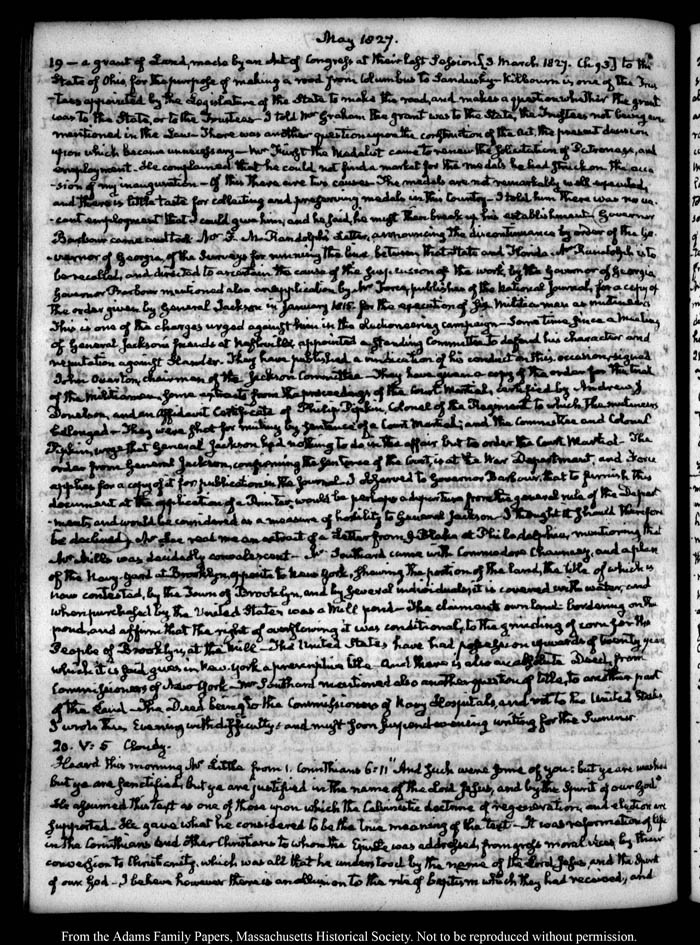 May 1827.
19 — a grant of Land, made by an Act of Congress at their last Session [3 March 1827. Ch 93] to the
State of Ohio, for the purpose of making a road from Columbus to Sandusky — Kilbourn is one of the Trus
-tees appointed by the Legislature of the State to make the road, and makes a question whether the grant
was to the State, or to the Trustees — I told Mr Graham the grant was to the State, the Trustees not being even
mentioned in the Law — There was another question upon the construction of the Act, the present decision
upon which became unnecessary — Mr Furst the Medalist came to renew the solicitation of Patronage, and
employment — He complained that he could not find a market for the medals he had struck on the occa
-sion of my inauguration — Of this there are two causes — The medals are not remarkably well executed,
and there is little taste for collecting and preserving medals in this Country — I told him there was no va-
-cant employment that I could give him, and he said, he must then break up his establishment. Governor
Barbour came and took Mr T. M. Randolph's Letter, announcing the discontinuance by order of the Go-
-vernor of Georgia, of the Surveys for running the line between that State and Florida. Mr Randolph is to
be recalled, and directed to ascertain the cause of the suspension of the work, by the Governor of Georgia.
Governor Barbour mentioned also an application by Mr Force, publisher of the National Journal, for a copy of
the order given by General Jackson in January 1815 for the execution of six Militia men as mutineers
This is one of the charges urged against him in the electioneering campaign — Some time since a Meeting
of General Jackson's friends at Nashville, appointed a standing Committee to defend his character and
reputation against slander. They have published a vindication of his conduct on this occasion, signed
John Overton, chairman of the Jackson Committee — They have given a copy of the order for the trial
of the Militiamen, some extracts from the proceedings of the Court Martial, certified by Andrew J.
Donelson, and an affidavit Certificate of Philip Pipkin, Colonel of the Regiment to which the mutineers
belonged — They were shot for mutiny by sentence of a Court Martial; and the Committee and Colonel
Pipkin, urge that General Jackson had nothing to do in the affair but to order the Court Martial — The
order from General Jackson, confirming the sentence of the Court, is at the War Department, and Force
applies for a copy of it for publication in the Journal — I observed to Governor Barbour, that to furnish this
document at the application of a Printer, would be perhaps a departure from the general rule of the Depart
-ments and would be considered as a measure of hostility to General Jackson. I thought it should therefore
be declined. Mr Lee read me an extract of a Letter from J. Blake at Philadelphia, mentioning that
Mr Mills was decidedly convalescent — Mr Southard came with Commodore Chauncey, and a plan
of the Navy-Yard at Brooklyn, opposite to New York, shewing the portion of the land, the title of which is
now contested, by the Town of Brooklyn, and by several individuals; it is covered with water, and
when purchased by the United States was a Mill pond — The claimants own land bordering on the
pond, and affirm that the right of overflowing it was conditional, to the grinding of corn for the
People of Brooklyn, at the Mill — The United States have had possession upwards of twenty years
which it is said gives in New-York a prescriptive title. And there is also an absolute Deed, from
Commissioners of New-York — Mr Southard mentioned also another question of title, to another part
of the Land — The Deed being to the Commissioners of Navy Hospitals, and not to the United States,
I wrote this Evening with difficulty; and must soon suspend evening writing for the Summer.
20. V: 5 Cloudy.
Heard this morning Mr Little from 1. Corinthians 6:11 "And such were some of you: but ye are washed
but ye are sanctified, but ye are justified in the name of the Lord Jesus, and by the Spirit of our God"
He assumed this text as one of those upon which the Calvinistic doctrine of regeneration, and election are
supported — He gave what he considered to be the true meaning of the text — It was reformation of life
in the Corinthians and other Christians to whom the Epistle was addressed, from gross moral vices, by their
conversion to Christianity, which was all that he understood by the name of the Lord Jesus and the Spirit
of our God — I believe however there is an allusion to the rite of baptism which they had received, and
From the Adams Family Papers, Massachusetts Historical Society. Not to be reproduced without permission.